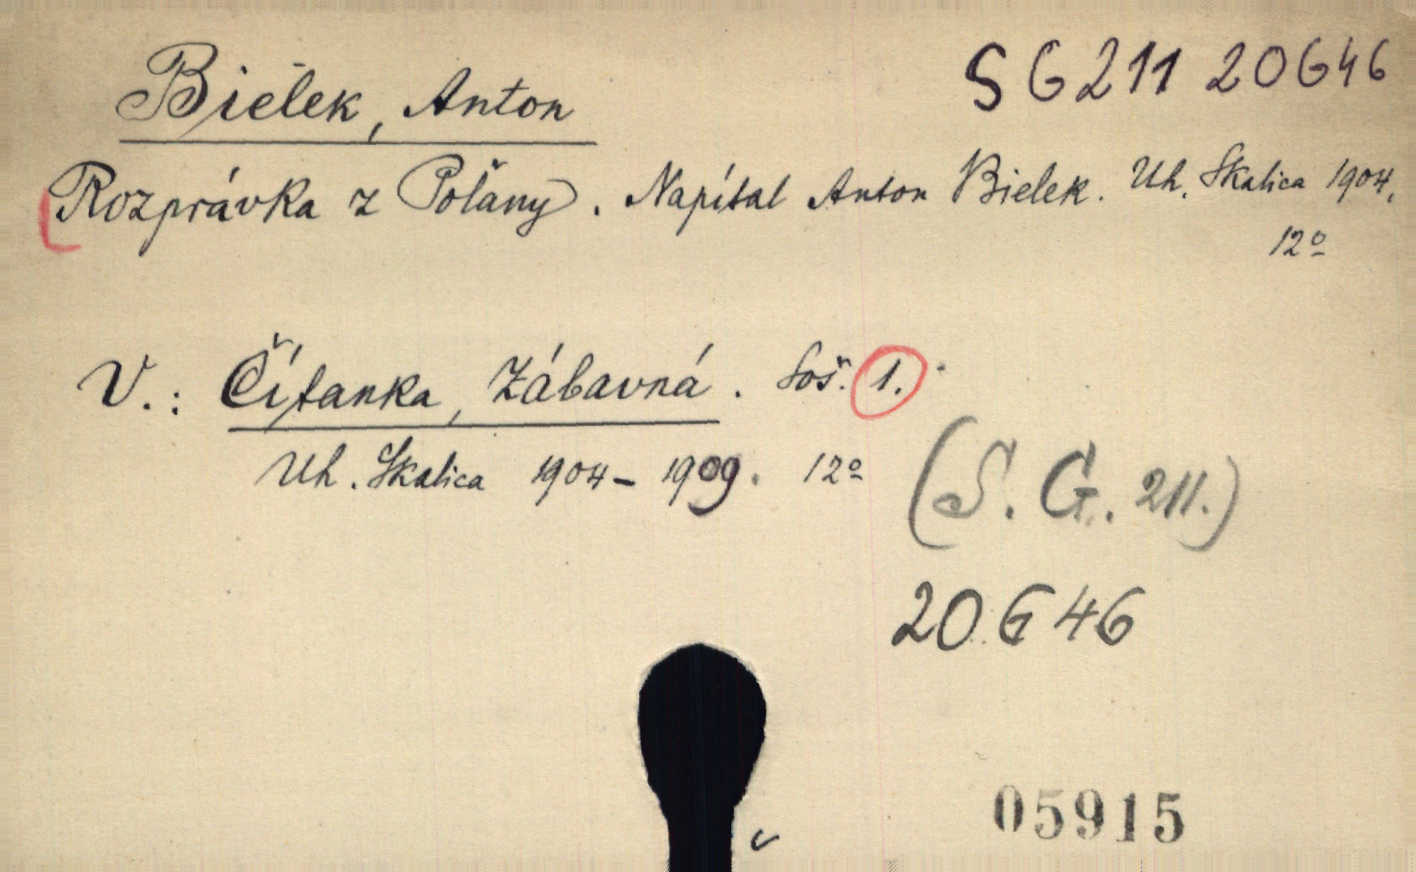 Bielek, Anton
S G 211 20 G 46
Rozprávka z Poľany. Napísal Anton Bielek. Uh. Skalica 1904.
12º
V.: Čítanka, Zábavná. Soš. 1.
Uh. Skalica 1904-1909. 12º
(S. G. 211.)
20 G 46
05915